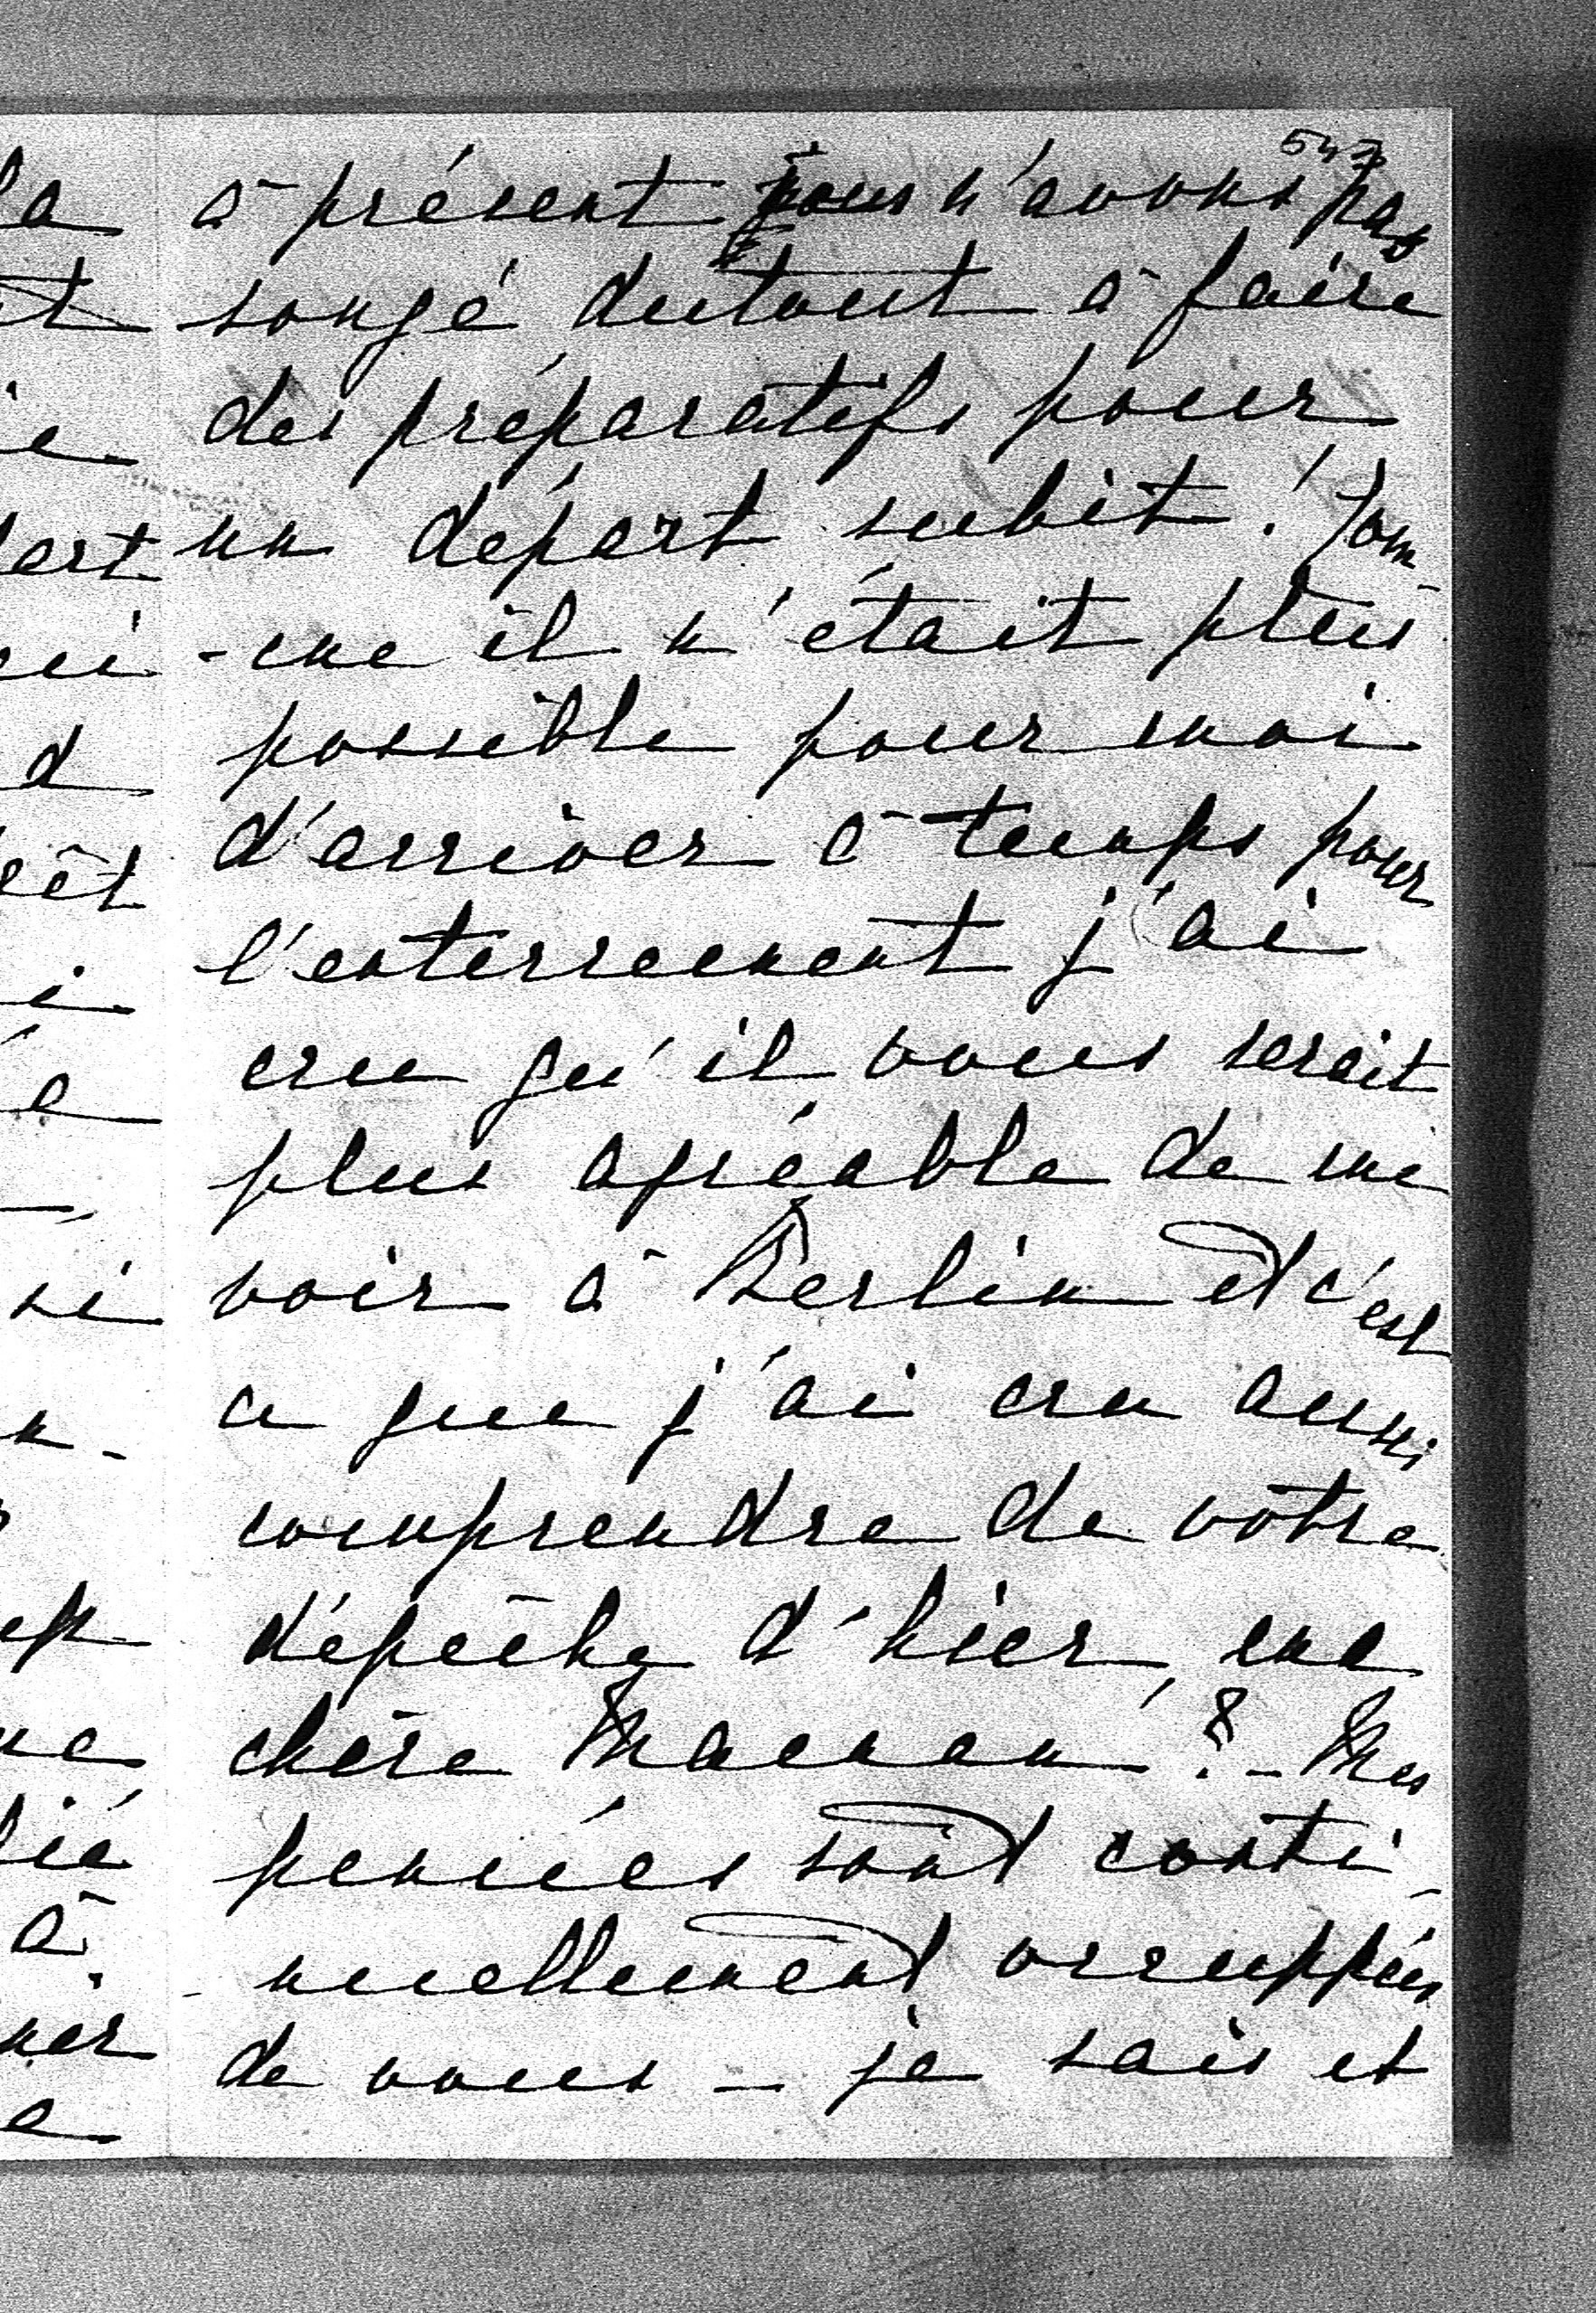 547
à présent nous n'avons pas
songé dutout à faire
des préparatifs pour
un départ subit! Com-
-me il n'était plus
possible pour moi
d'arriver à temps pour
l'enterrement j'ai
cru qu'il vous serait
plus agréable de me
voir à Berlin et c'est
ce que j'ai cru aussi
comprendre de vôtre
dépêche d'hier, ma
chère Maman! ? - Mes
pensées sont conti-
-nuellement occuppées
de vous - je sais et